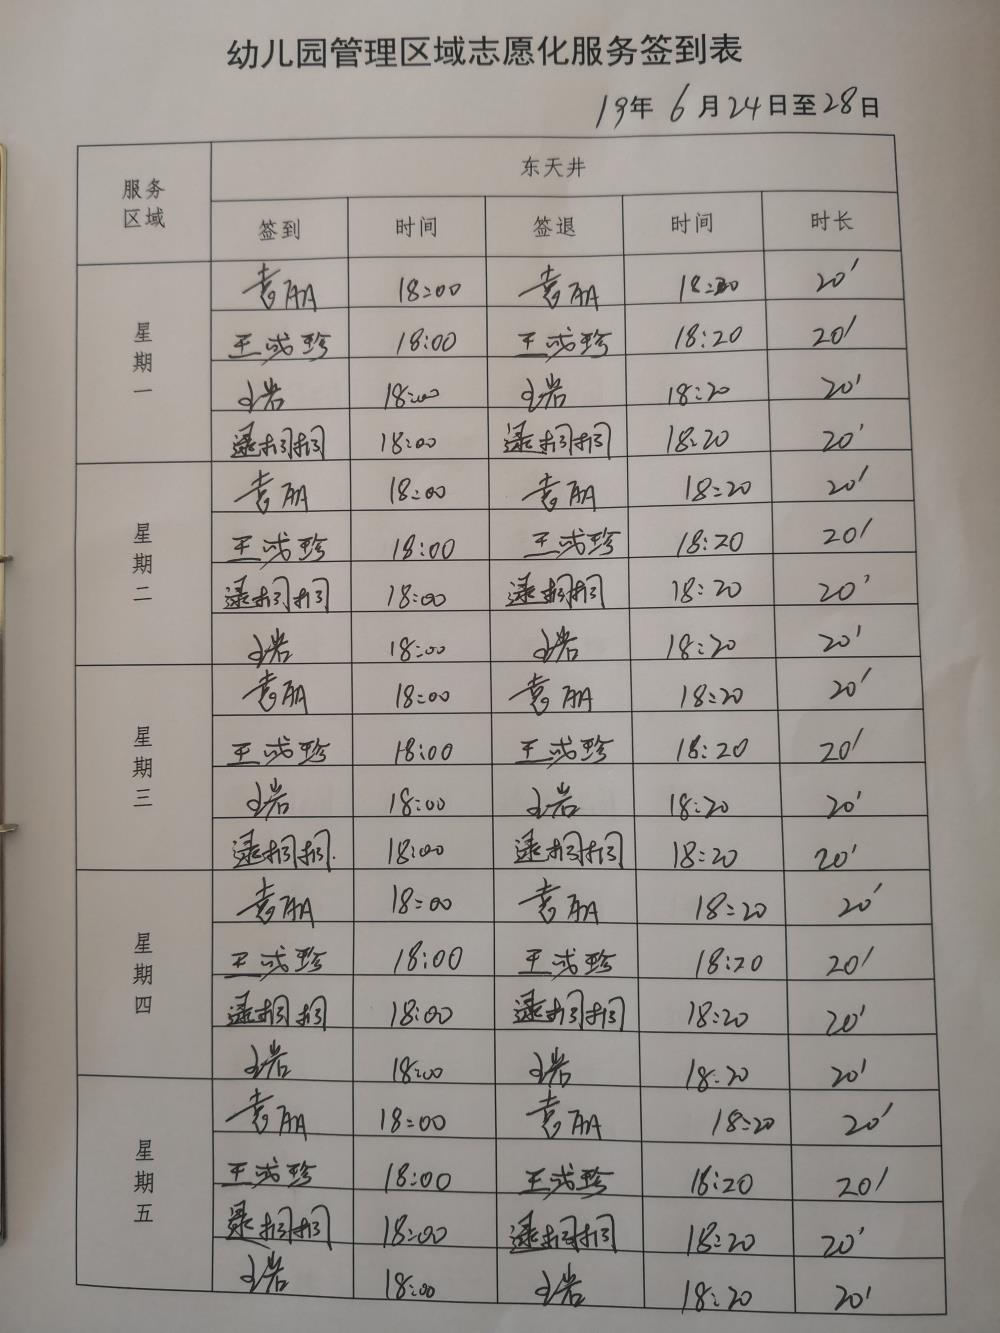 幼儿园管理区域志愿化服务签到表
19年 6月24日至28日
服务区域 东天井
签到 时间 签退 时间 时长
星期一
袁丽 18:00 袁丽 18:20 20′
王成珍 18:00 王成珍 18:20 20′
王岩 18:00 王岩 18:20 20′
逯栩栩 18:00 逯栩栩 18:20 20′
星期二
袁丽 18:00 袁丽 18:20 20′
王成珍 18:00 王成珍 18:20 20′
逯栩栩 18:00 逯栩栩 18:20 20′
王岩 18:00 王岩 18:20 20′
星期三
袁丽 18:00 袁丽 18:20 20′
王成珍 18:00 王成珍 18:20 20′
王岩 18:00 王岩 18:20 20′
逯栩栩 18:00 逯栩栩 18:20 20′
星期四
袁丽 18:00 袁丽 18:20 20′
王成珍 18:00 王成珍 18:20 20′
逯栩栩 18:00 逯栩栩 18:20 20′
王岩 18:00 王岩 18:20 20′
星期五
袁丽 18:00 袁丽 18:20 20′
王成珍 18:00 王成珍 18:20 20′
逯栩栩 18:00 逯栩栩 18:20 20′
王岩 18:00 王岩 18:20 20′